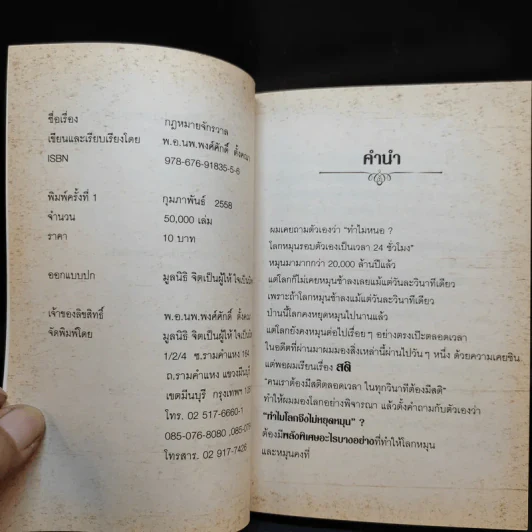 ชื่อเรื่อง กฎหมายจักรวาล
เขียนและเรียบเรียงโดย พ.อ.นพ.พงศ์ศักดิ์ ตั้งคณา
ISBN 978-676-91835-5-6
พิมพ์ครั้งที่ 1 กุมภาพันธ์ 2558
จำนวน 50,000 เล่ม
ราคา 10 บาท
ออกแบบปก มูลนิธิ จิตเป็นผู้ให้ ใจเป็น
เจ้าของลิขสิทธิ์ พ.อ.นพ.พงศ์ศักดิ์ ตั้งคณา
จัดพิมพ์โดย มูลนิธิ จิตเป็นผู้ให้ ใจเป็น
1/2/4 ซ.รามคำแหง 184
ถ.รามคำแหง แขวงมีนบุรี
เขตมีนบุรี กรุงเทพฯ
โทร. 02 517-6660-1
085-076-8080
โทรสาร. 02 917-7426
คำนำ
ผมเคยถามตัวเองว่า "ทำไมหนอ ?
โลกหมุนรอบตัวเองเป็นเวลา 24 ชั่วโมง"
หมุนมามากกว่า 20,000 ล้านปีแล้ว
แต่โลกก็ไม่เคยหมุนช้าลงเลยแม้แต่วันละวินาทีเดียว
เพราะถ้าโลกหมุนช้าลงแม้แต่วันละวินาทีเดียว
ป่านนี้โลกคงหยุดหมุนไปนานแล้ว
แต่โลกยังคงหมุนต่อไปเรื่อยๆ อย่างตรงเป๊ะตลอดเวลา
ในอดีตที่ผ่านมาผมมองสิ่งเหล่านี้ผ่านไปวันๆ หนึ่ง ด้วยความเคยชิน
แต่พอผมเรียนเรื่อง สติ
"คนเราต้องมีสติตลอดเวลา ในทุกวินาทีต้องมีสติ"
ทำให้ผมมองโลกอย่างพิจารณา แล้วตั้งคำถามกับตัวเองว่า
"ทำไมโลกจึงไม่หยุดหมุน" ?
ต้องมีพลังพิเศษอะไรบางอย่างที่ทำให้โลกหมุน
และหมุนคงที่